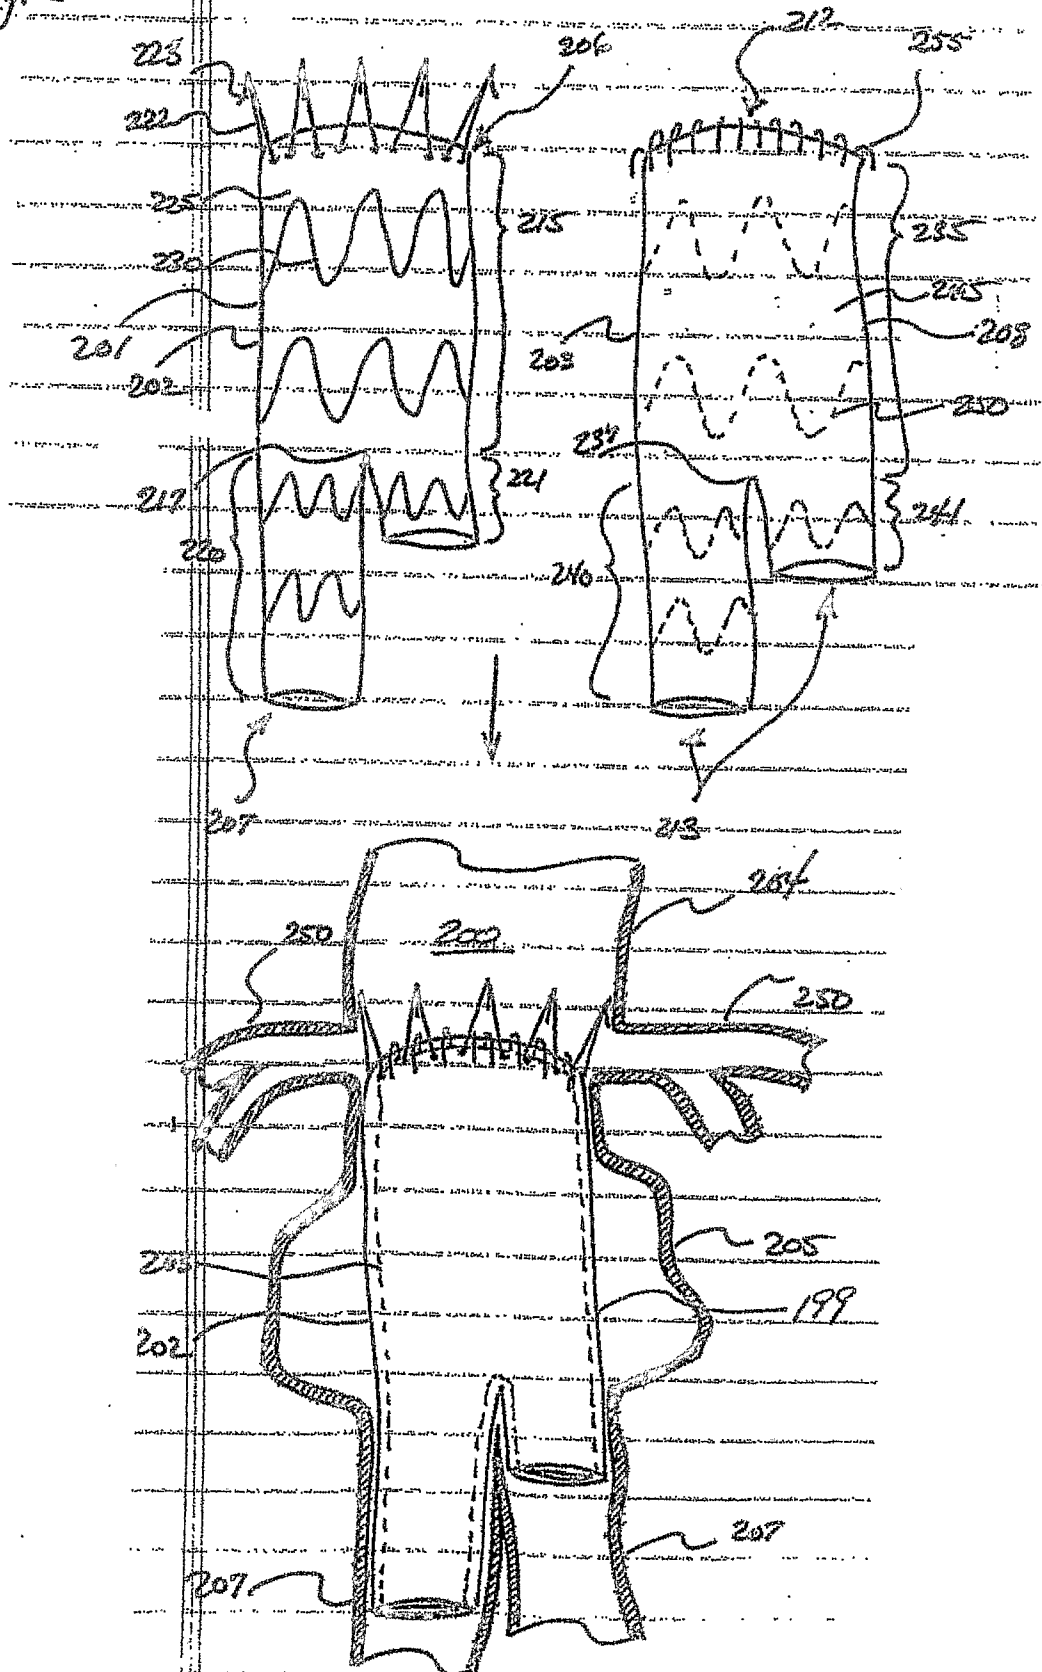 212
206
255
223
222
225
215
235
230
245
201
208
203
202
250
237
217
221
244
220
240
207
213
204
250
200
250
205
203
199
202
207
207